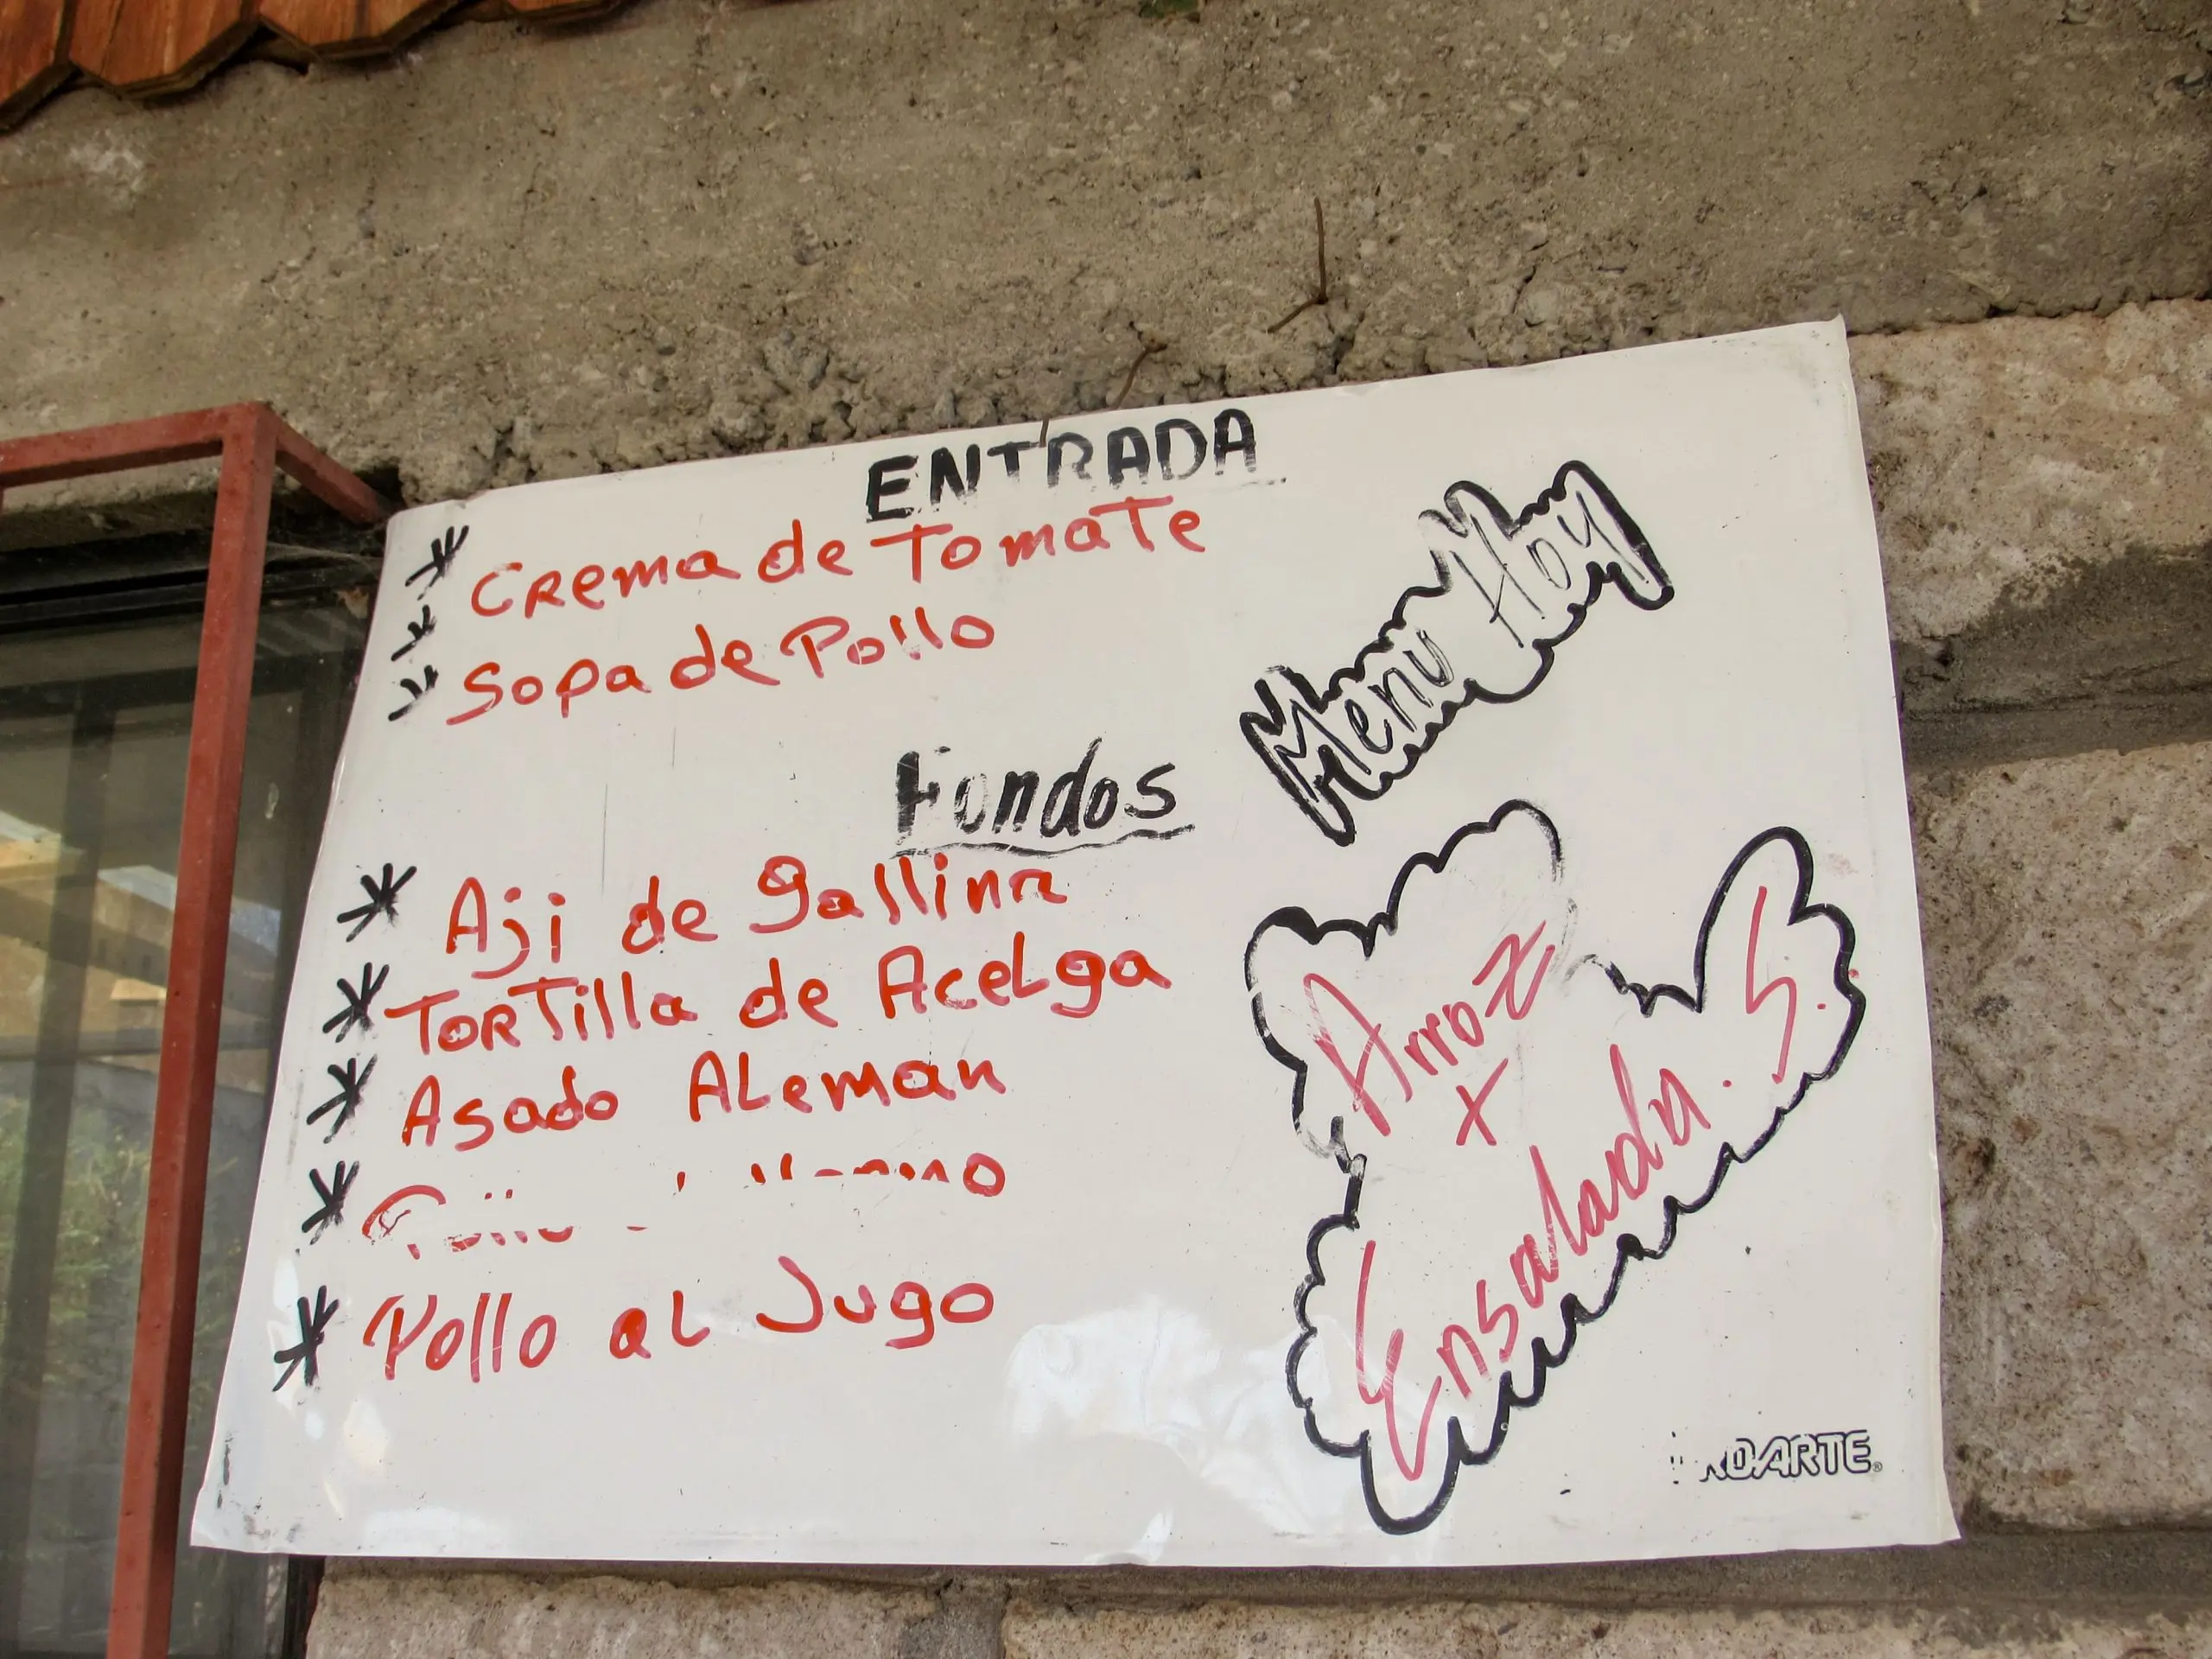 ENTRADA
Crema de Tomate
Sopa de Pollo
Menu Hoy
Fondos
Aji de gallina
Tortilla de Acelga
Asado Aleman
Pollo al Jugo
Arroz
+
Ensalada. S.